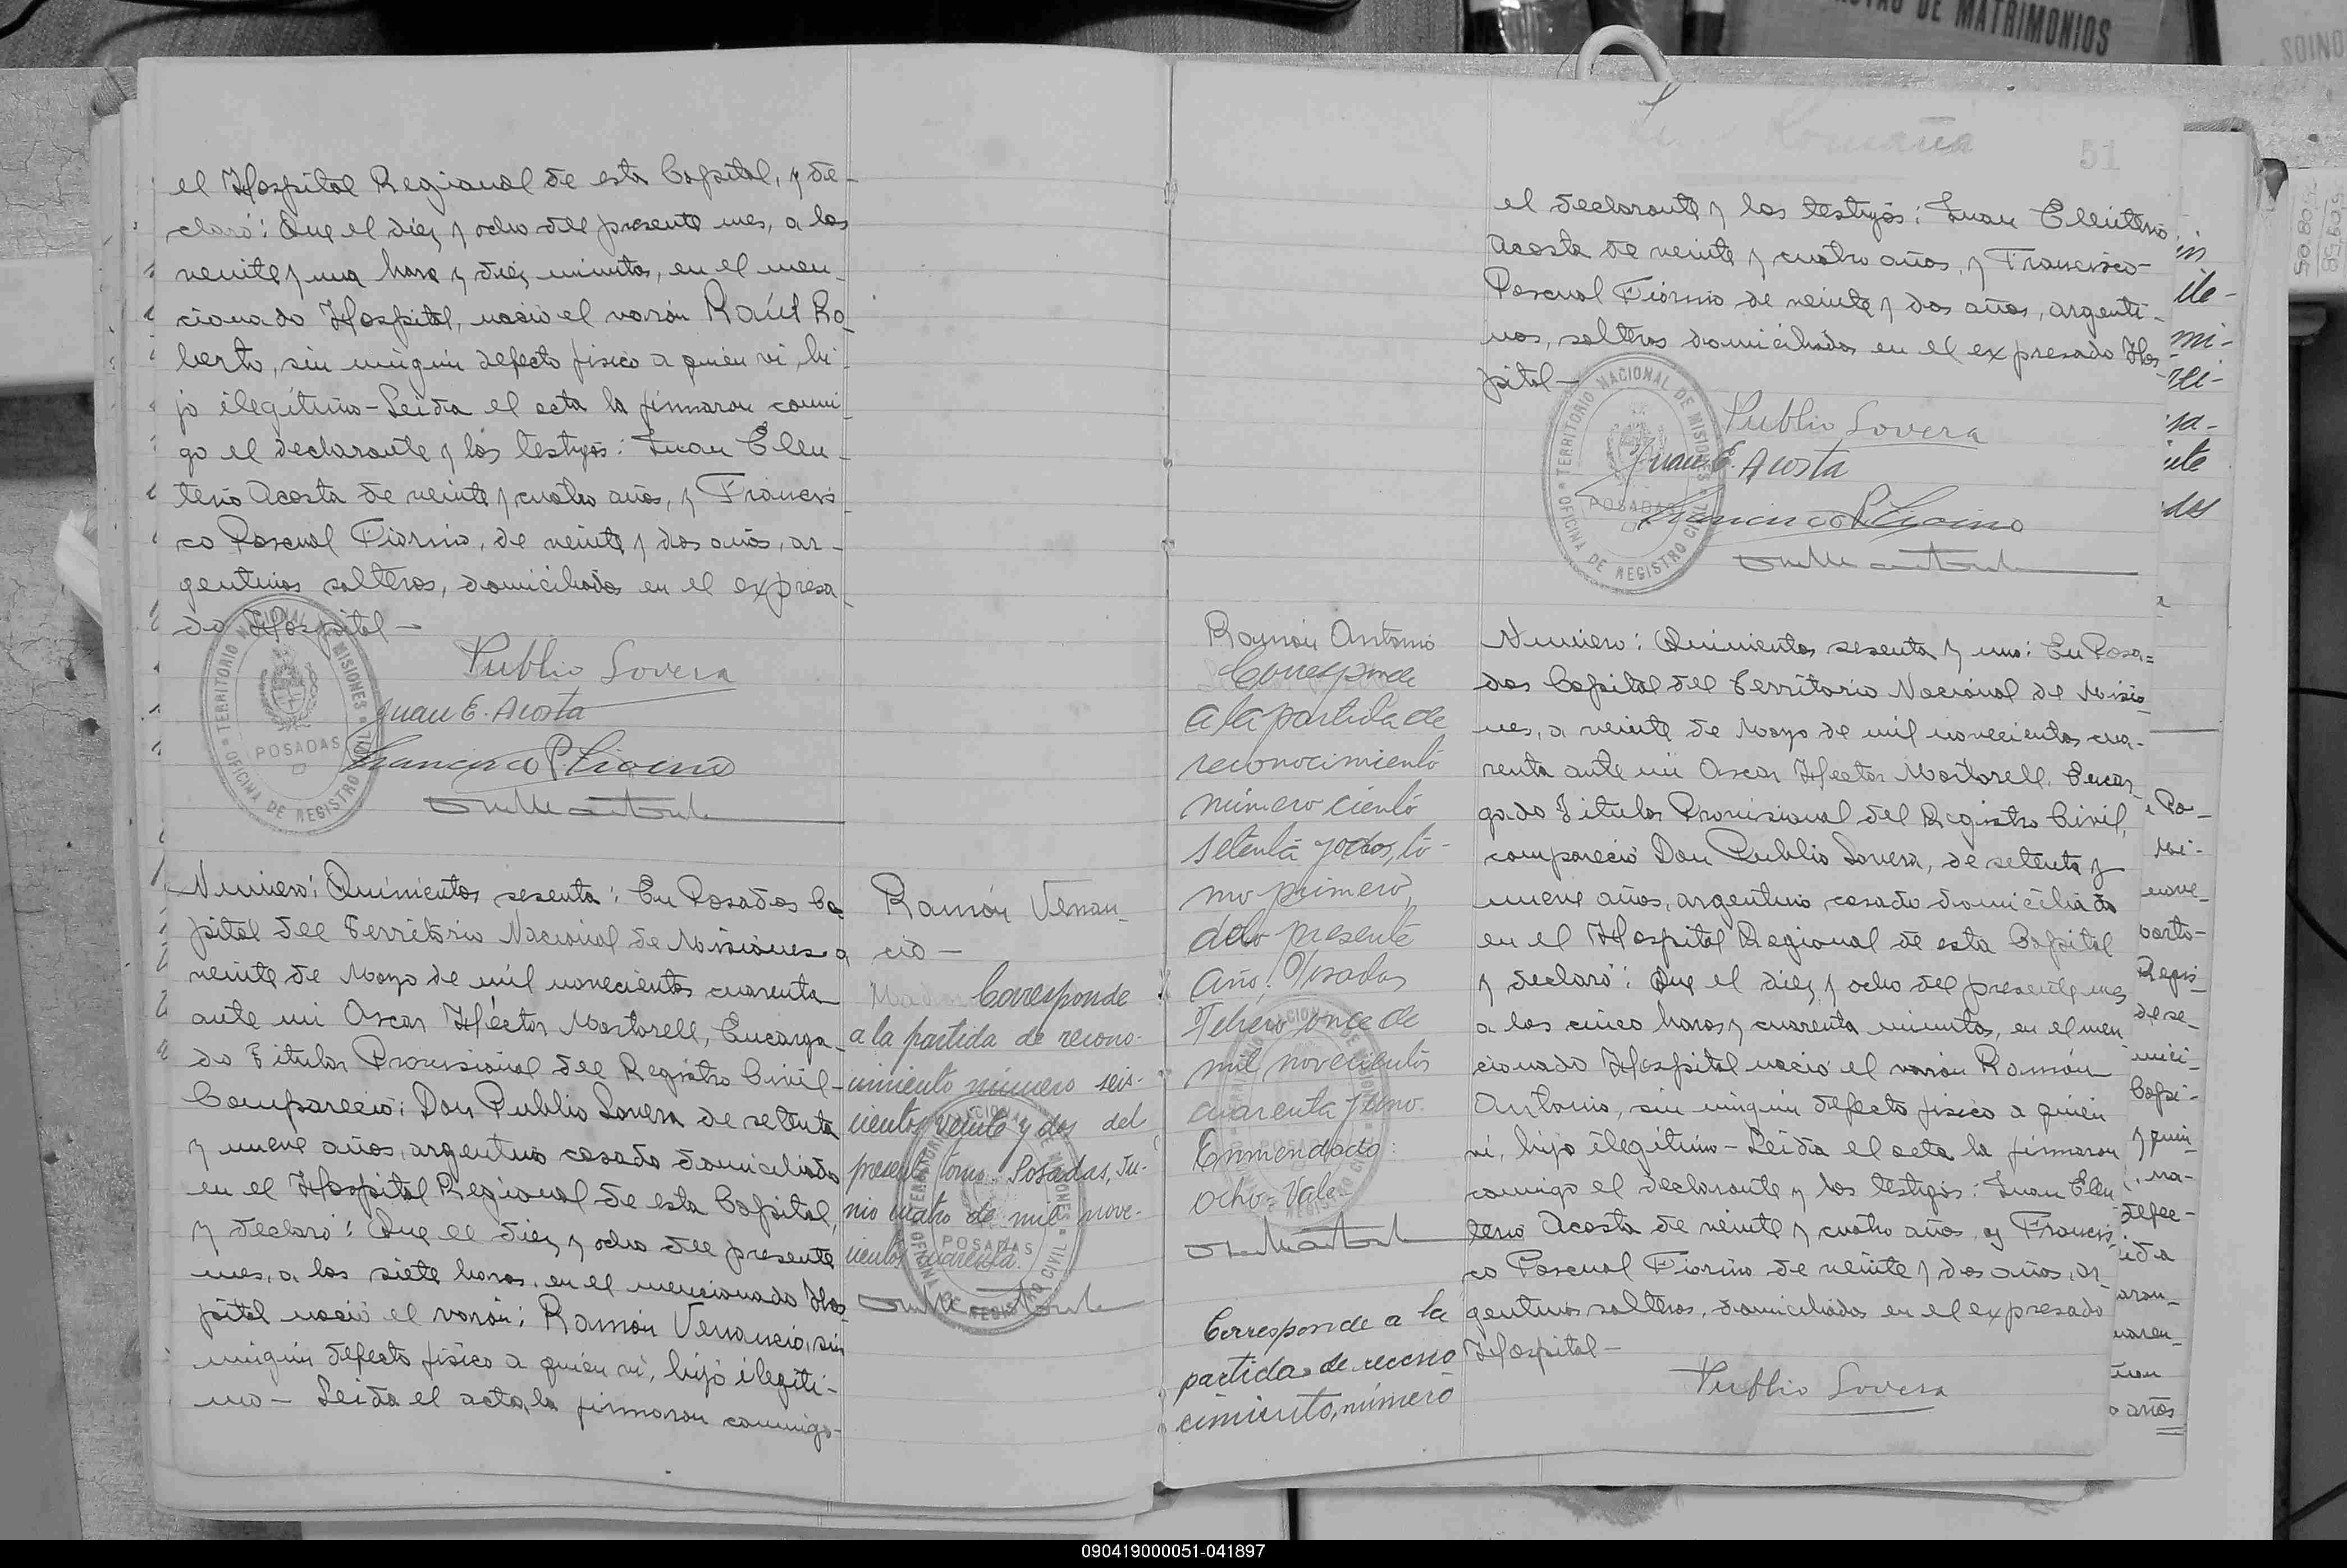 el Hospital Regional de esta Capital, y de-
claró: Que el diez y ocho del presente mes, a las
veinte y una hora y diez minutos, en el men-
cionado Hospital, nació el varón Raúl Ro-
berto, sin ningún defecto físico a quien vi, hi-
jo ilegítimo - Leída el acta la firmaron conmi-
go el declarante y los testigos: Juan Eleu-
terio Acosta de veinte y cuatro años, y Francis-
co Pascual Fiorino, de veinte y dos años, ar-
gentinos solteros, domiciliados en el expresa-
do Hospital -
TERRITORIO NACIONAL DE MISIONES
POSADAS
OFICINA DE REGISTRO CIVIL
Publio Lovera
Juan E. Acosta
Francisco P. Fiorino
Número: Quinientos sesenta: En Posadas Ca-
pital del Territorio Nacional de Misiones a
veinte de Mayo de mil novecientos cuarenta
ante mi Oscar Héctor Martorell, Encarga-
do Titular Provisional del Registro Civil -
Compareció: Don Publio Lovera de setenta
y nueve años, argentino casado domiciliado
en el Hospital Regional de esta Capital,
y declaró: Que el diez y ocho del presente
mes, a las siete horas, en el mencionado Hos-
pital nació el varón: Ramón Venancio, sin
ningún defecto físico a quien vi, hijo ilegíti-
mo - Leída el acta, la firmaron conmigo-
Ramón Venan-
cio -
Corresponde
a la partida de recono-
cimiento número seis-
cientos veinte y dos del
presente tomo. Posadas, Ju-
nio cuatro de mil nove-
cientos cuarenta.
POSADAS
REGISTRO CIVIL
51
el declarante y los testigos: Juan Eleuterio
Acosta de veinte y cuatro años, y Francisco-
Pascual Fiorino de veinte y dos años, argenti-
nos, solteros domiciliados en el expresado Hos-
pital -
TERRITORIO NACIONAL DE MISIONES
POSADAS
OFICINA DE REGISTRO CIVIL
Publio Lovera
Juan E. Acosta
Francisco P. Fiorino
Ramón Antonio
Corresponde
a la partida de
reconocimiento
número ciento
setenta y ocho, to-
mo primero,
del presente
año. Posadas
Febrero once de
mil novecientos
cuarenta y uno.
Enmendado:
ocho = Vale
Corresponde a la
partida de recono
cimiento, número
Número: Quinientos sesenta y uno: En Posa=
das Capital del Territorio Nacional de Misio-
nes, a veinte de Mayo de mil novecientos cua-
renta ante mi Oscar Héctor Martorell, Encar-
gado Titular Provisional del Registro Civil,
compareció Don Publio Lovera, de setenta y
nueve años, argentino casado domiciliado
en el Hospital Regional de esta Capital
y declaró: Que el diez y ocho del presente mes
a las cinco horas y cuarenta minutos, en el men
cionado Hospital nació el varón Ramón
Antonio, sin ningún defecto físico a quien
vi, hijo ilegítimo - Leída el acta la firmaron
conmigo el declarante y los testigos: Juan Eleu
terio Acosta de veinte y cuatro años, y Francis-
co Pascual Fiorino de veinte y dos años, ar-
gentinos solteros, domiciliados en el expresado
Hospital -
Publio Lovera
DE MATRIMONIOS
090419000051-041897